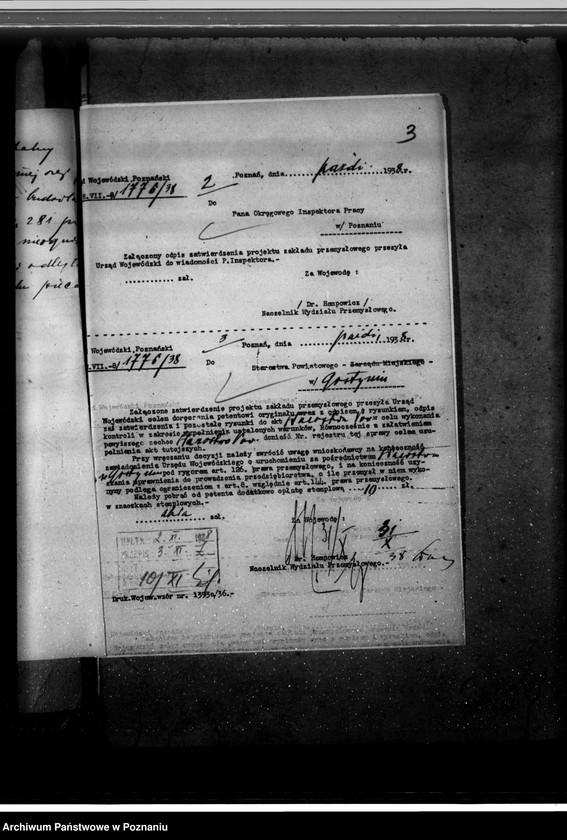 3
d Wojewódzki Poznański
.VII.-8/ 1776/38
2
Poznań, dnia paźdź. 1938.r.
Do
Pana Okręgowego Inspektora Pracy
w/ Poznaniu
Załączony odpis zatwierdzenia projektu zakładu przemysłowego przesyła
Urząd Wojewódzki do wiadomości P.Inspektora.-
............ zał.
Za Wojewodę :
/ Dr. Hempowicz /
Naczelnik Wydziału Przemysłowego.
Wojewódzki Poznański
.VII.-8/ 1776/38
3
Poznań, dnia paźdź. 1938.r.
Do
Starostwa Powiatowego - Zarządu Miejskiego -
w/ Gostyniu
Załączone zatwierdzenie projektu zakładu przemysłowego przesyła Urząd
Wojewódzki celem doręczenia petentowi oryginału wraz z odpisem i rysunkiem, odpis
zaś zatwierdzenia i pozostałe rysunki do akt Starostwa Pow. w celu wykonania
kontroli w zakresie wypełnienia ustalonych warunków. Równocześnie z załatwieniem
powyższego zechce Starostwo Pow. donieść Nr. rejestru tej sprawy celem uzu-
pełnienia akt tutejszych.
Przy wręczaniu decyzji należy zwrócić uwagę wnioskodawcy na konieczność
zawiadomienia Urzędu Wojewódzkiego o uruchomieniu za pośrednictwem Starostwa
pod rygorem art. 126. prawa przemysłowego, i na konieczność uzy-
skania uprawnienia do prowadzenia przedsiębiorstwa, o ile przemysł w niem wyko-
nywany podlega ograniczeniom z art.8. względnie art.144. prawa przemysłowego.
Należy pobrać od petenta dodatkowo opłatę stemplową 10 zł.
w znaczkach stemplowych.-
akta zał.
Za Wojewodę :
31/X
31/X 38
Dr. Hempowicz
Naczelnik Wydziału Przemysłowego.-
2. XI. 1938
3. XI.
10/XI
Druk.Wojew.wzór nr. 1393a/36.-
281
Archiwum Państwowe w Poznaniu